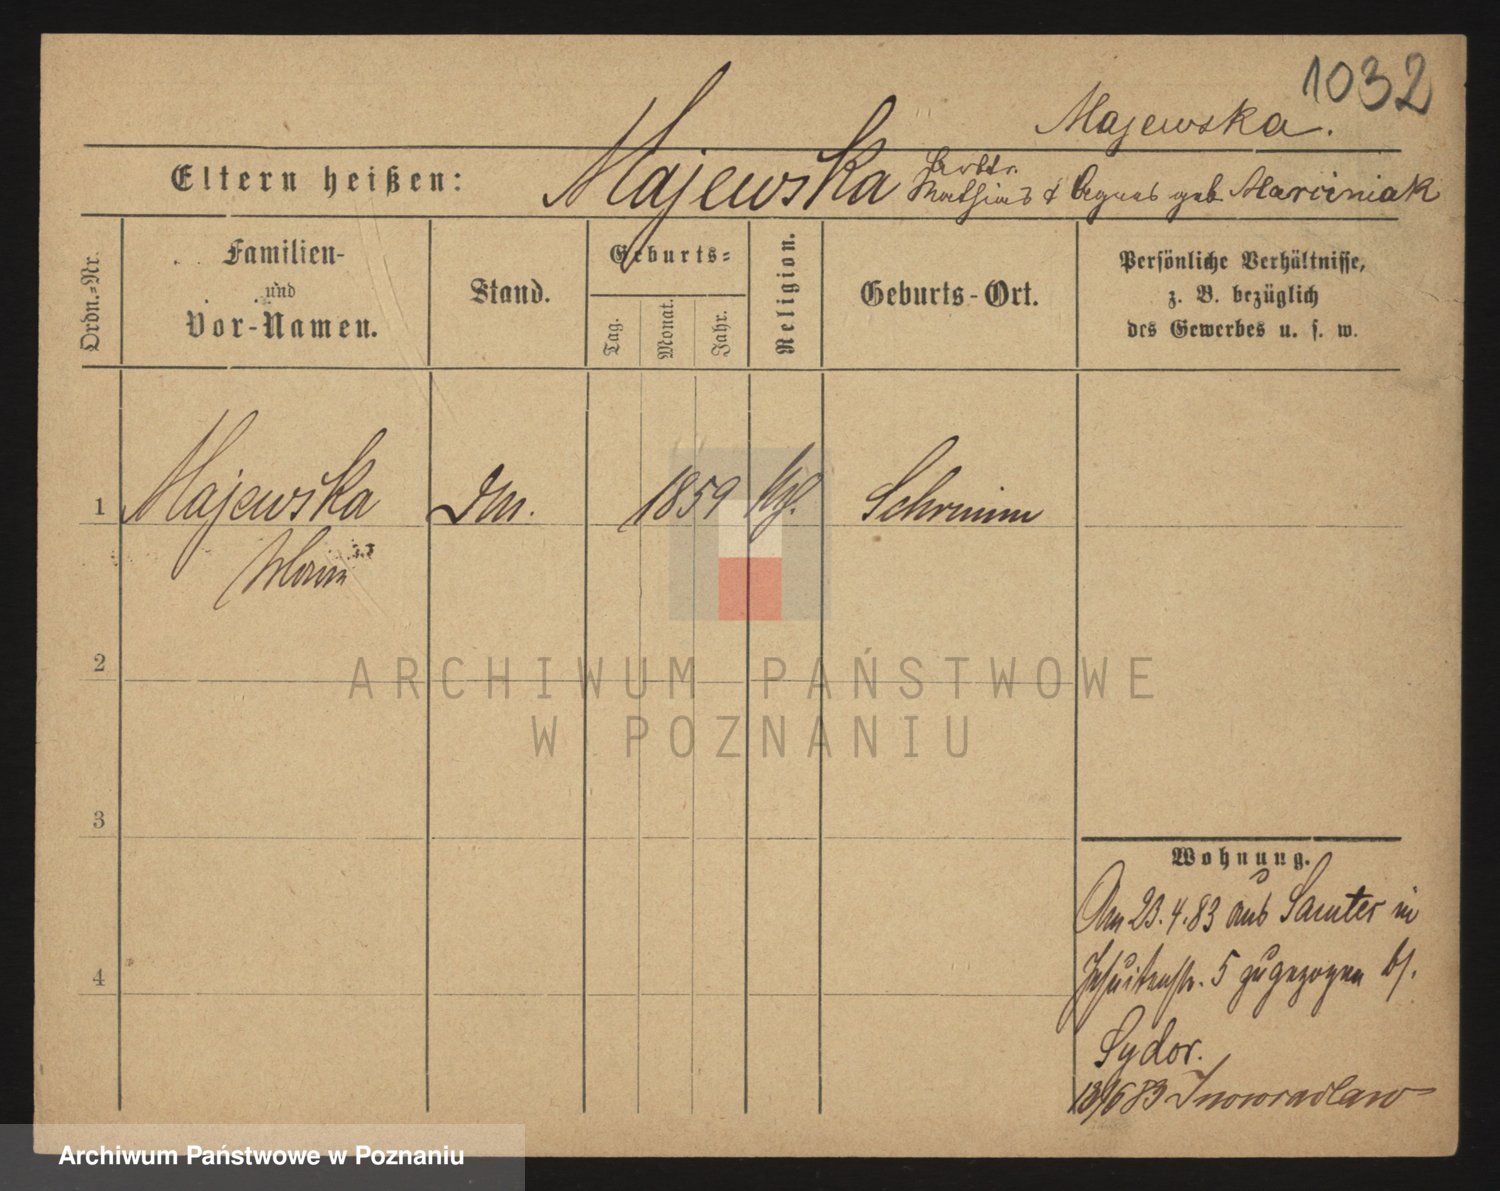 1032
Majewska.
Eltern heißen: Majewska Arbtr.
Mathias & Agnes geb Marciniak
Ordn.=Nr.
Familien-
und
Vor-Namen.
Stand.
Geburts=
Tag.
Monat.
Jahr.
Religion.
Geburts-Ort.
Persönliche Verhältnisse,
z. B. bezüglich
des Gewerbes u. s. w.
1 Majewska 1859 Schrimm
2
3
4
ARCHIWUM PAŃSTWOWE
W POZNANIU
Wohnung.
Am 23.4.83 aus Samter in
Jesuitenstr. 5 zugezogen b/.
Sydor.
13/6 83 Inowraclaw
Archiwum Państwowe w Poznaniu